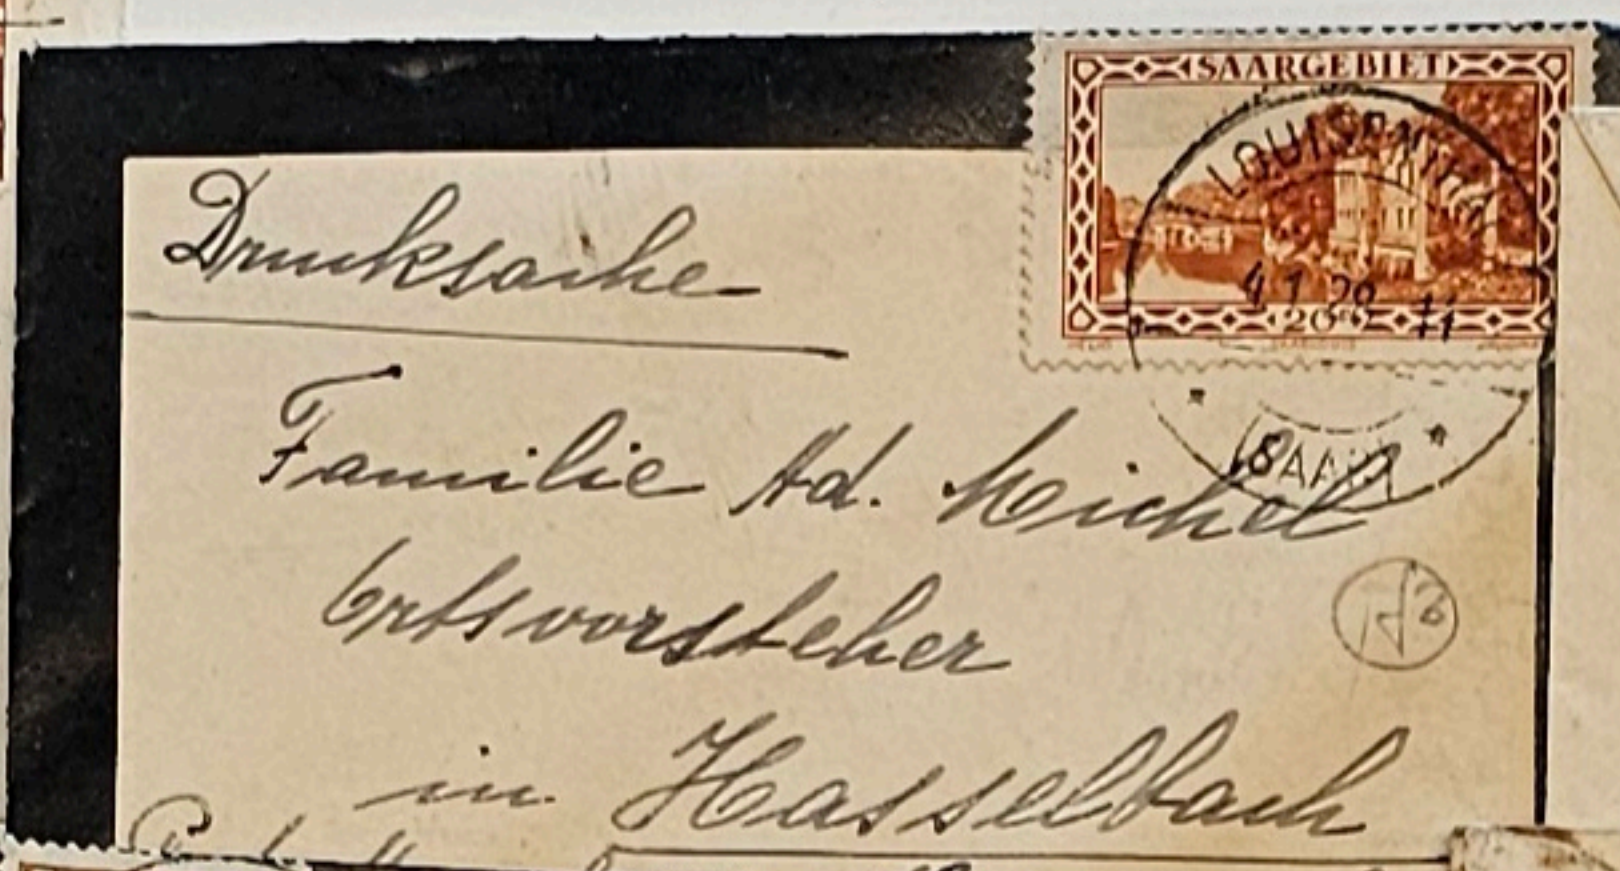 SAARGEBIET
LOUISENTHAL
4.1.29 11
20
SAAR
Drucksache
Familie Ad. Michel
Ortsvorsteher
in Hasselbach